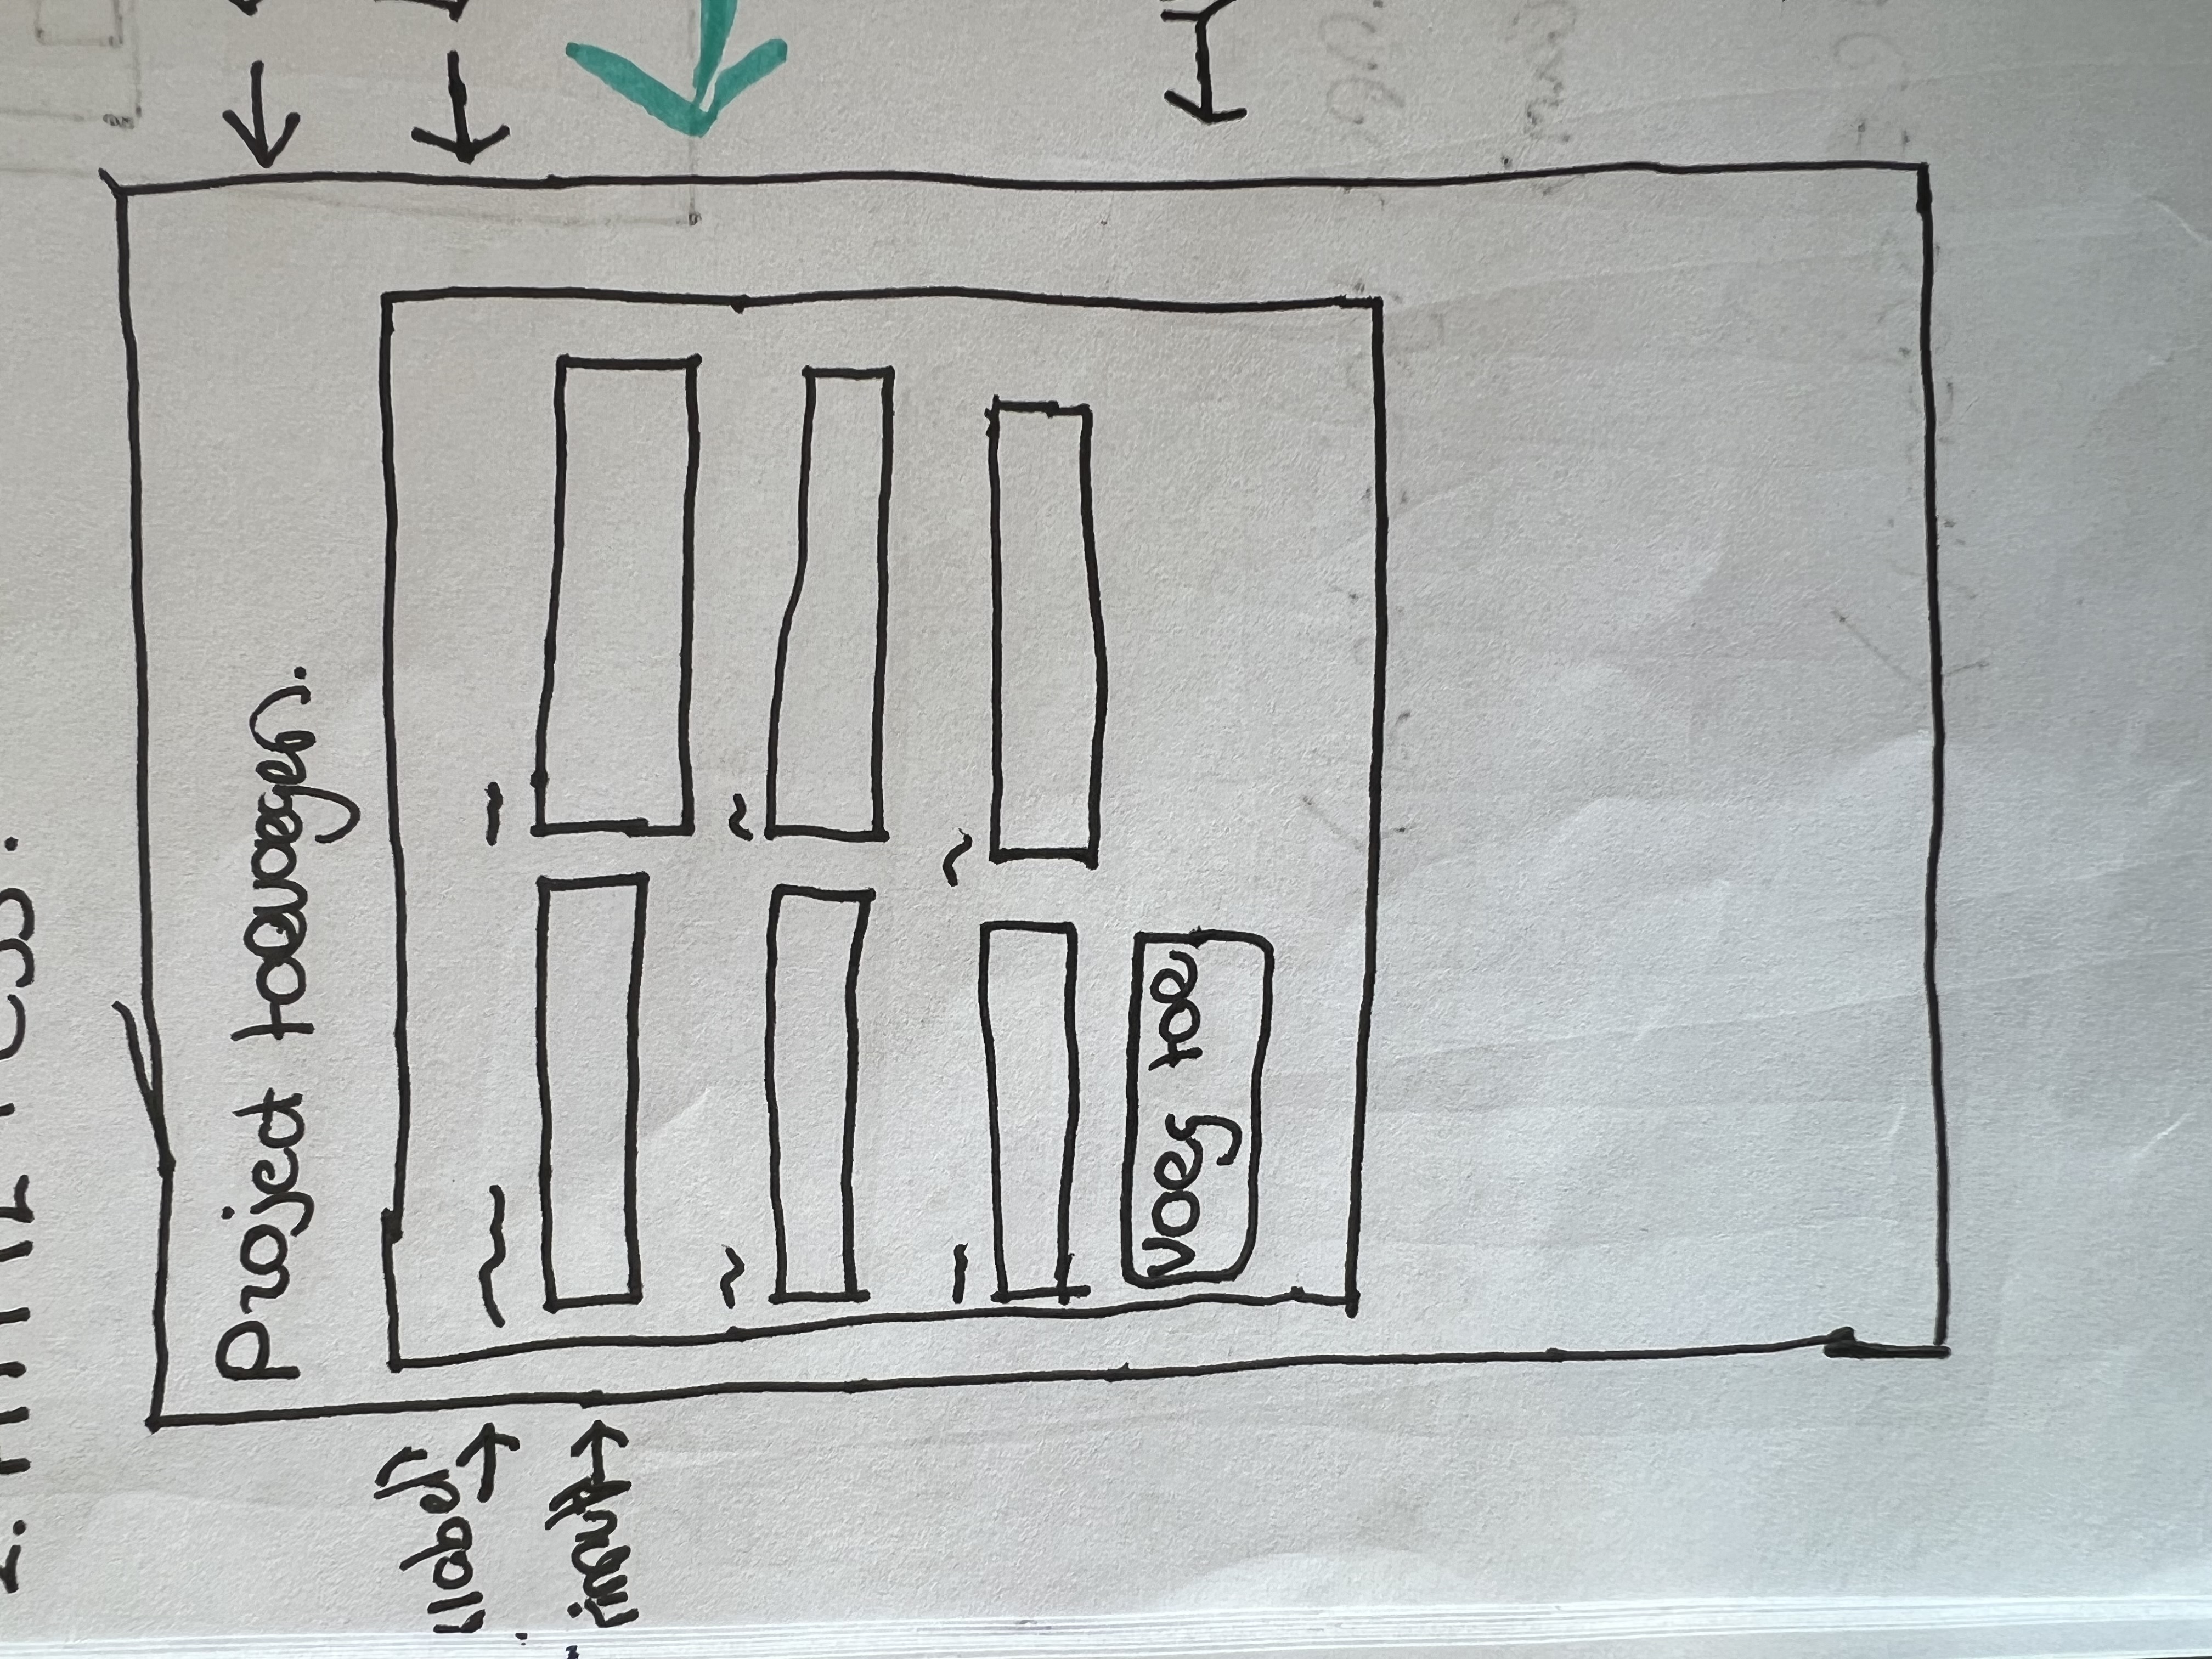 2. HTML + CSS.
Project toevoegen.
"label"
input
voeg toe